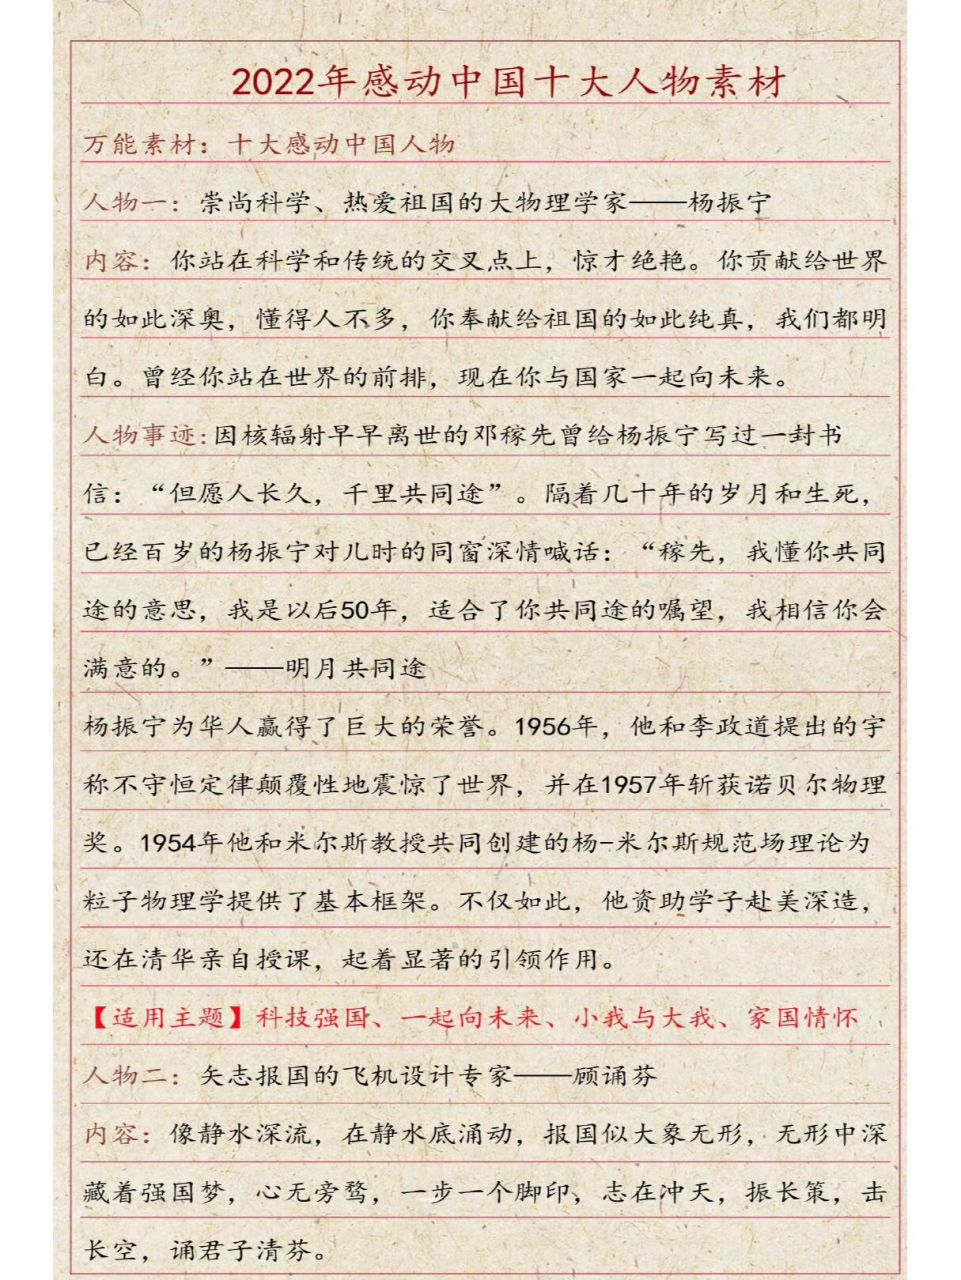 2022年感动中国十大人物素材
万能素材：十大感动中国人物
人物一：崇尚科学、热爱祖国的大物理学家——杨振宁
内容：你站在科学和传统的交叉点上，惊才绝艳。你贡献给世界
的如此深奥，懂得人不多，你奉献给祖国的如此纯真，我们都明
白。曾经你站在世界的前排，现在你与国家一起向未来。
人物事迹:因核辐射早早离世的邓稼先曾给杨振宁写过一封书
信：“但愿人长久，千里共同途”。隔着几十年的岁月和生死，
已经百岁的杨振宁对儿时的同窗深情喊话：“稼先，我懂你共同
途的意思，我是以后50年，适合了你共同途的嘱望，我相信你会
满意的。”——明月共同途
杨振宁为华人赢得了巨大的荣誉。1956年，他和李政道提出的宇
称不守恒定律颠覆性地震惊了世界，并在1957年斩获诺贝尔物理
奖。1954年他和米尔斯教授共同创建的杨-米尔斯规范场理论为
粒子物理学提供了基本框架。不仅如此，他资助学子赴美深造，
还在清华亲自授课，起着显著的引领作用。
【适用主题】科技强国、一起向未来、小我与大我、家国情怀
人物二：矢志报国的飞机设计专家——顾诵芬
内容：像静水深流，在静水底涌动，报国似大象无形，无形中深
藏着强国梦，心无旁骛，一步一个脚印，志在冲天，振长策，击
长空，诵君子清芬。